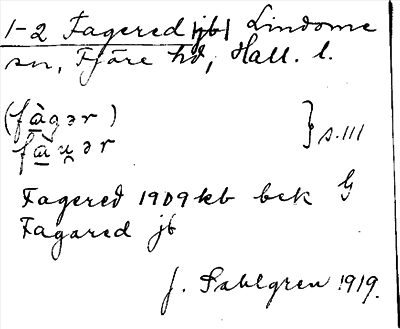 1-2 Fagered |jb| Lindome
sn, Fjäre hd, Hall. l.
(fàgər) } s. 111
fàu̯ər
Fagered 1909 kb bek G
Fagared jb
J. Sahlgren 1919.